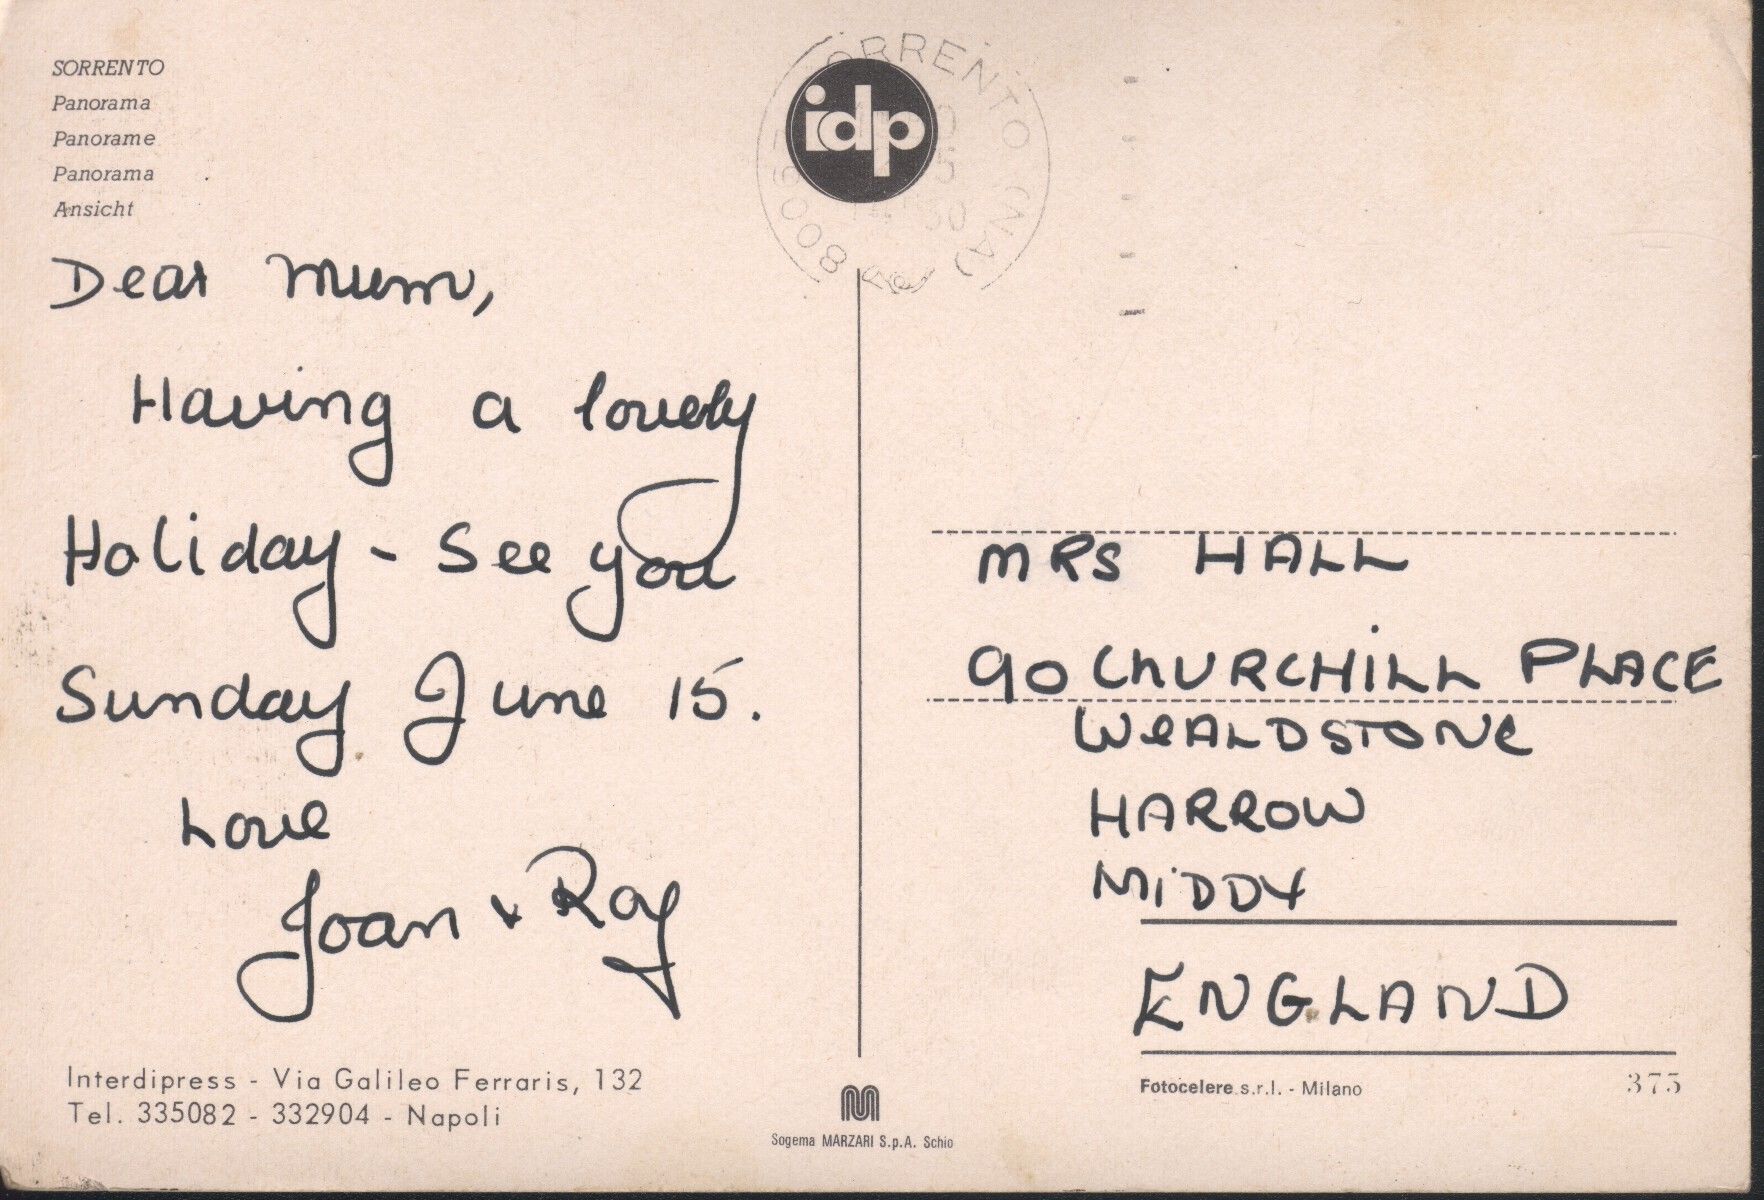 SORRENTO
Panorama
Panorame
Panorama
Ansicht
idp
SORRENTO (NA)
Dear Mum,
Having a lovely
Holiday - See you
Sunday June 15.
Love
Joan + Roy
MRS HALL
90 CHURCHILL PLACE
WeALDSTONe
HARROW
MiDDX
ENGLAND
Interdipress - Via Galileo Ferraris, 132
Tel. 335082 - 332904 - Napoli
Sogema MARZARI S.p.A. Schio
Fotocelere s.r.l. - Milano
375